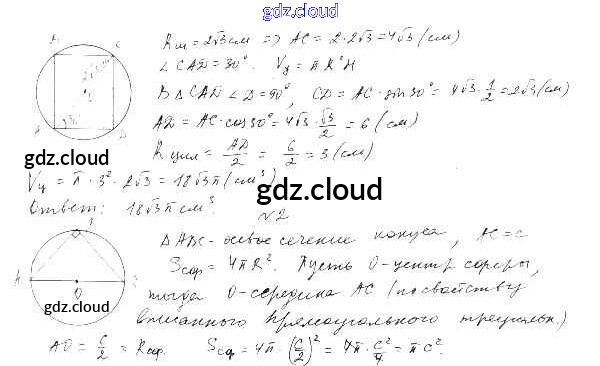 gdz.cloud
Rш = 2√3 см => AC = 2·2√3 = 4√3 (см)
∠CAD = 30°. Vц = πR²H
В ΔCAD ∠D = 90°, CD = AC·sin30° = 4√3·1/2 = 2√3 (см)
AD = AC·cos30° = 4√3·√3/2 = 6 (см)
gdz.cloud
Rцил = AD/2 = 6/2 = 3 (см)
Vц = π·3²·2√3 = 18√3π (см³)
gdz.cloud
Ответ: 18√3π см³.
№2
ΔABC - осевое сечение конуса, AC = c
Sсф = 4πR². Пусть O - центр сферы,
gdz.cloud
тогда O - середина AC (по свойству
вписанного прямоугольного треугольн.)
AO = c/2 = Rсф. Sсф = 4π·(c/2)² = 4π·c²/4 = πc².